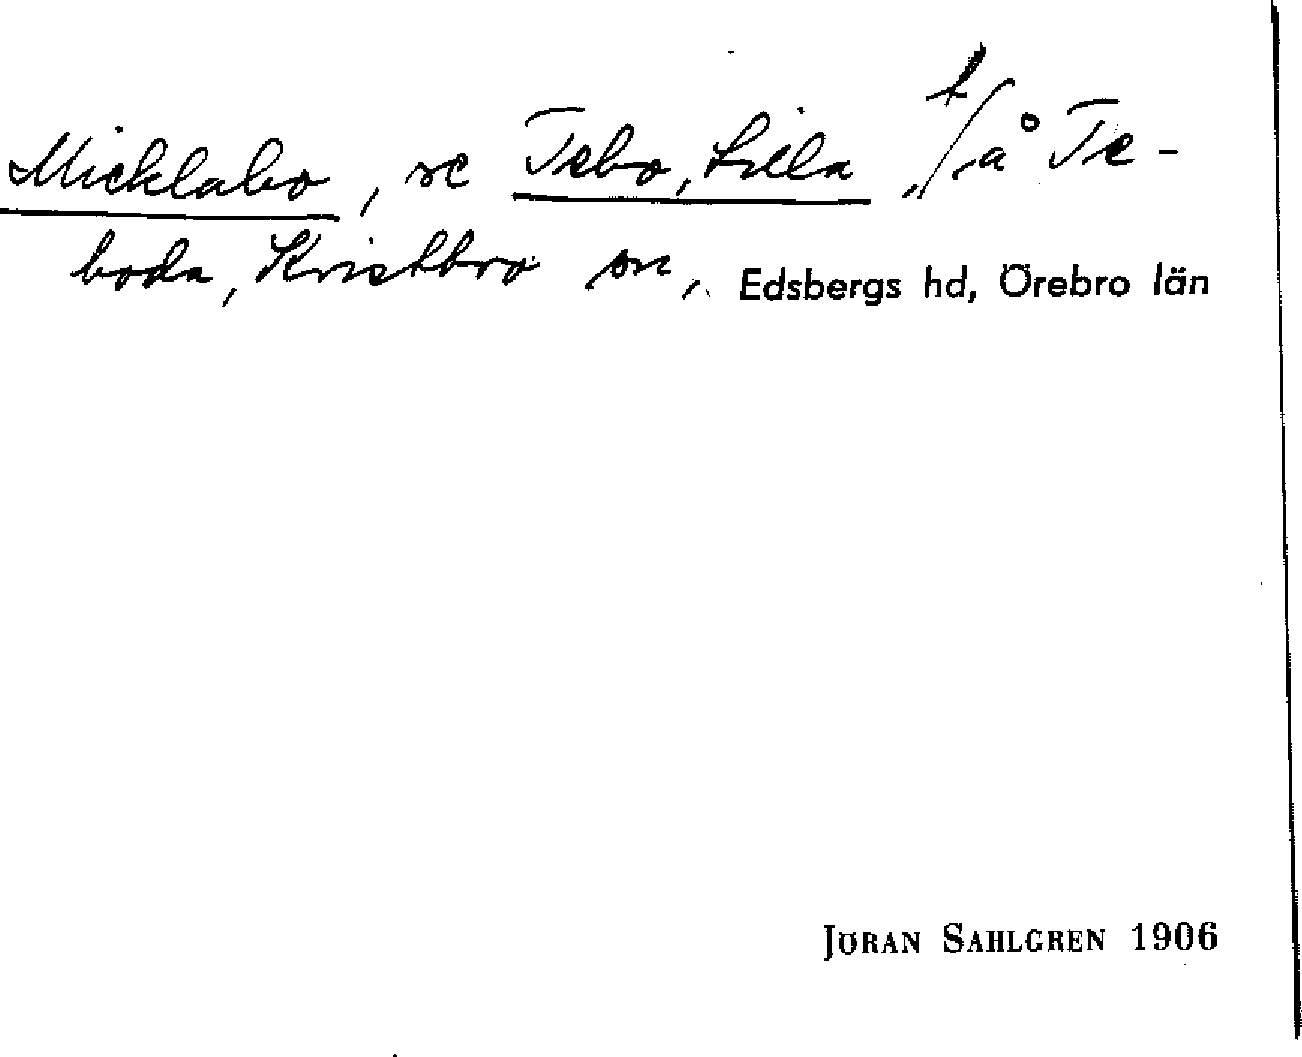 Micklabo, se Tebo, Lilla, t/å Te-
boda, Kvistbro sn, Edsbergs hd, Örebro län
JÖRAN SAHLGREN 1906